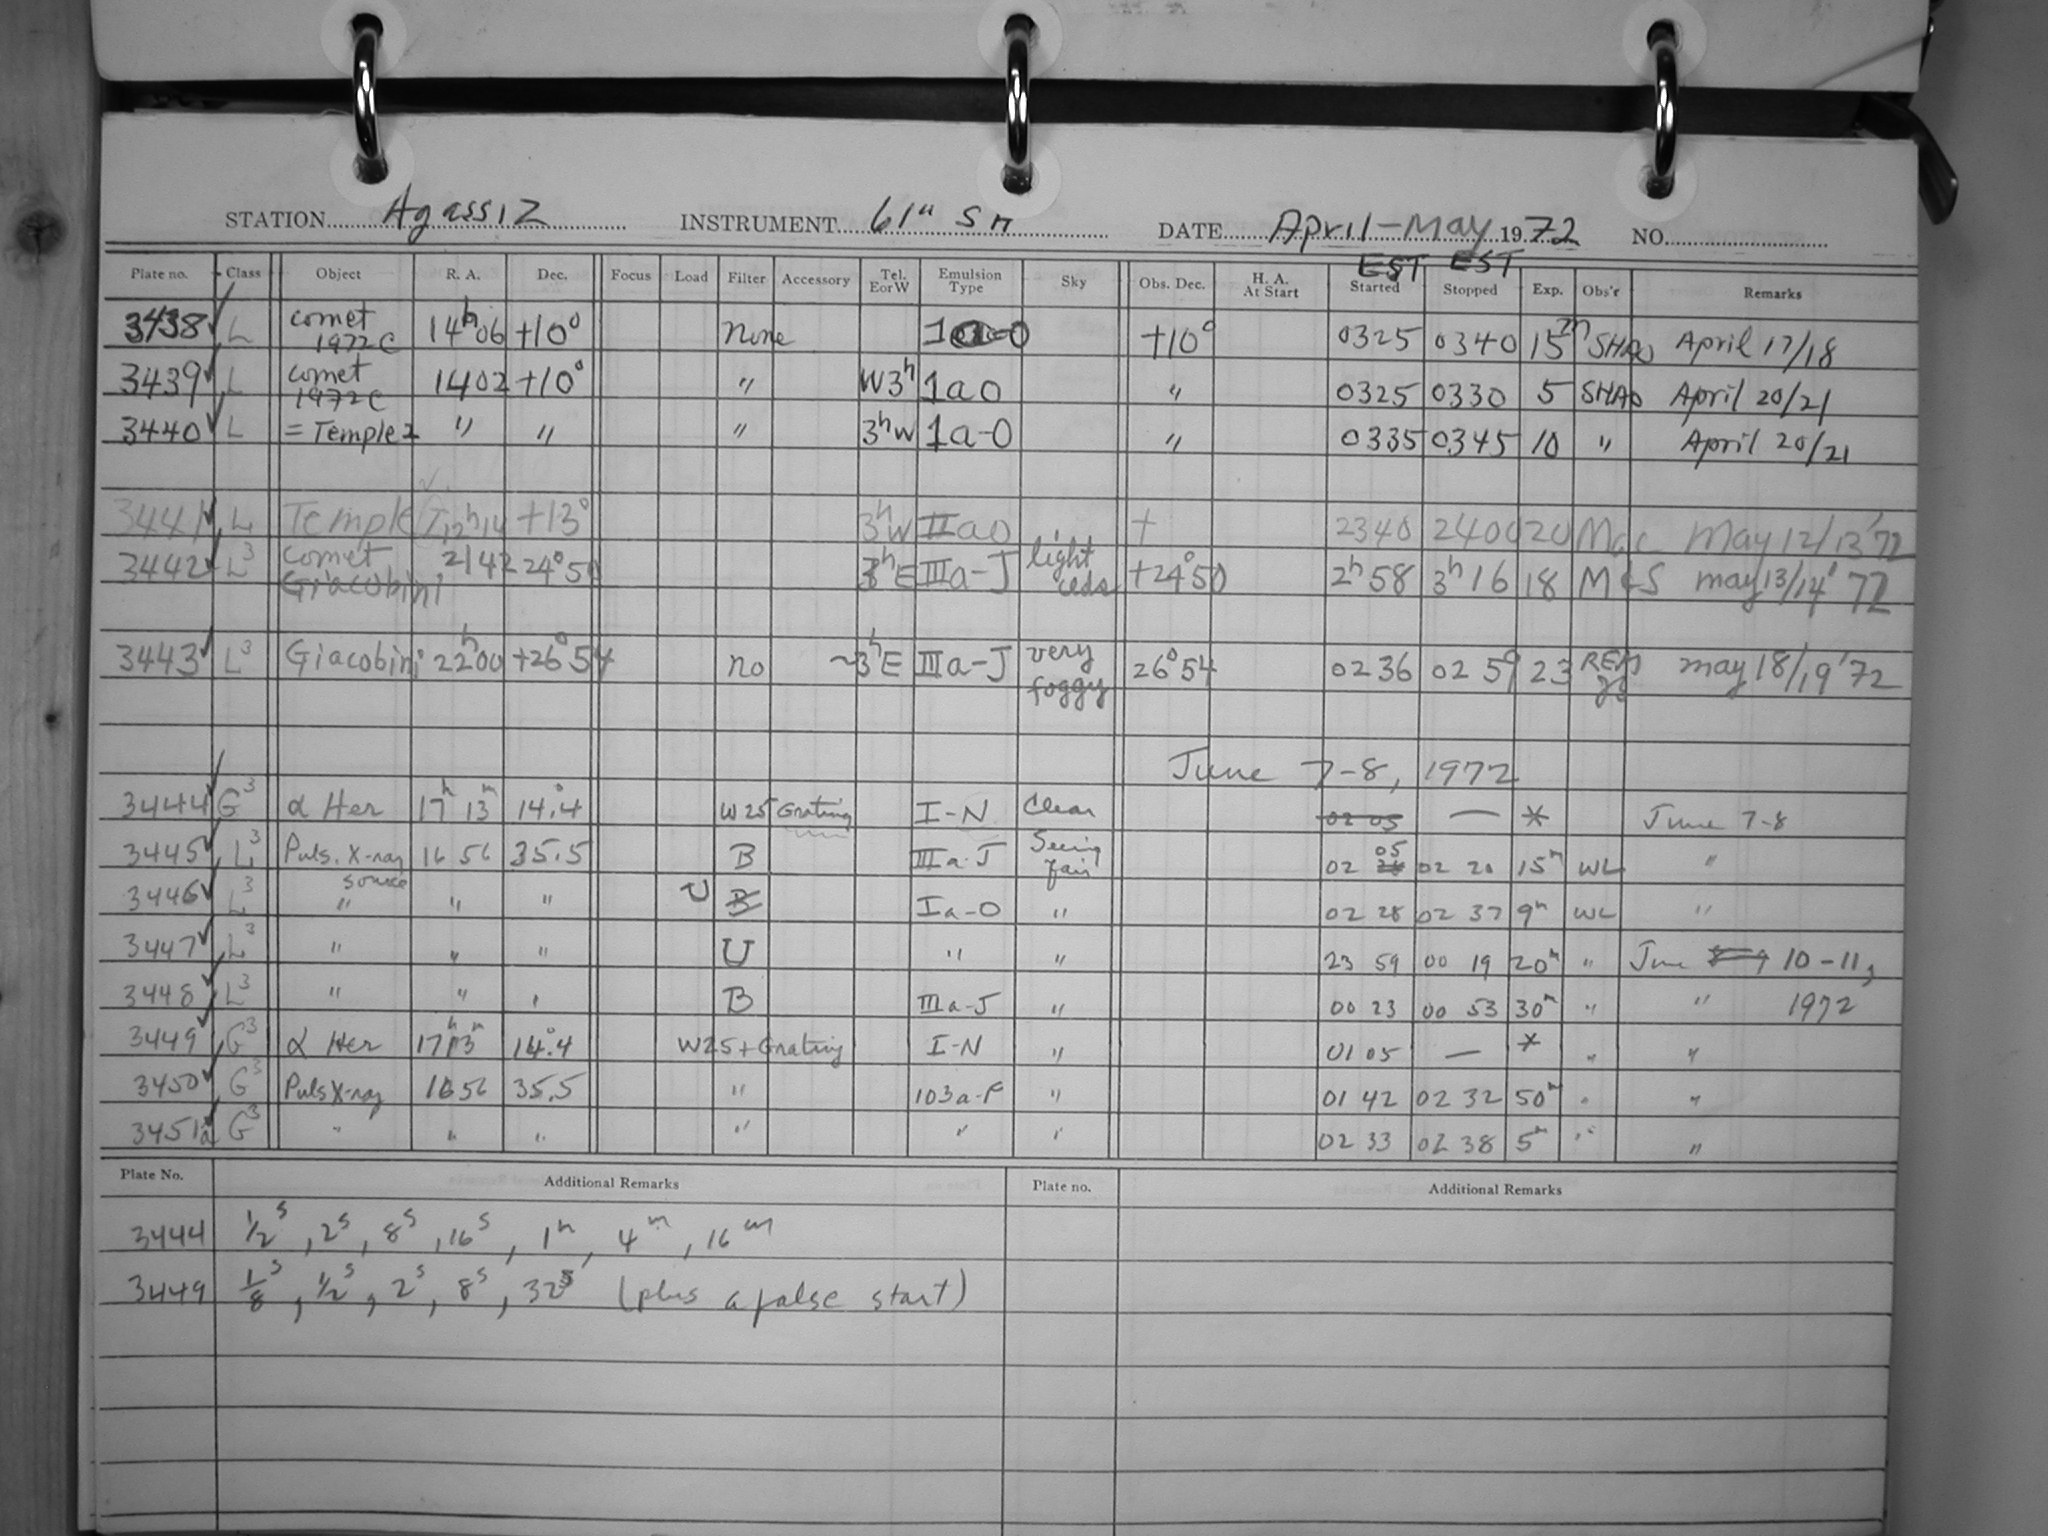 STATION Agassiz INSTRUMENT 61" DATE April-May 1972 NO.
EST EST
Plate no. Class Object R. A. Dec. Focus Load Filter Accessory Tel. E or W Emulsion Type Sky Obs. Dec. H. A. At Start Started Stopped Exp. Obs'r Remarks
3438 L comet 1972C 14h06 +10° none 1a-0 +10° 0325 0340 15m SHAO April 17/18
3439 L comet 1972C 1402 +10° " W3h 1a0 " 0325 0330 5 SHAO April 20/21
3440 L = Temple 2 " " " 3hW 1a-0 " 0335 0345 10 " April 20/21
3441 L Temple 12h14 +13° 3hW IIa0 + 2340 2400 20 May 12/13 '72
3442 L3 comet Giacobini 2142 24°50 3hE IIIa-J light clds +24°50 2h58 3h16 18 May 13/14 '72
3443 L3 Giacobini 22h00 +26°54 no ~3hE IIIa-J very foggy 26°54 02 36 02 59 23 May 18/19 '72
June 7-8, 1972
3444 G3 α Her 17h 13m 14.°4 W25 Grating I-N Clear 02 05 — * June 7-8
3445 L3 Puls. X-ray source 16 56 35.5 B IIIa-J Seeing fair 02 05 02 20 15m WL "
3446 L3 " " " U B Ia-O " 02 28 02 37 9m WL "
3447 L3 " " " U " " 23 59 00 19 20m " June 10-11,
3448 L3 " " " B IIIa-J " 00 23 00 53 30m " " 1972
3449 G3 α Her 17h13m 14.°4 W25 + Grating I-N " 01 05 — * " "
3450 G3 Puls X-ray 16 56 35.5 " 103a-F " 01 42 02 32 50m " "
3451a G3 " " " " " " 02 33 02 38 5m " "
Plate No. Additional Remarks Plate no. Additional Remarks
3444 1/2s, 2s, 8s, 16s, 1m, 4m, 16m
3449 1/8s, 1/2s, 2s, 8s, 32s (plus a false start)